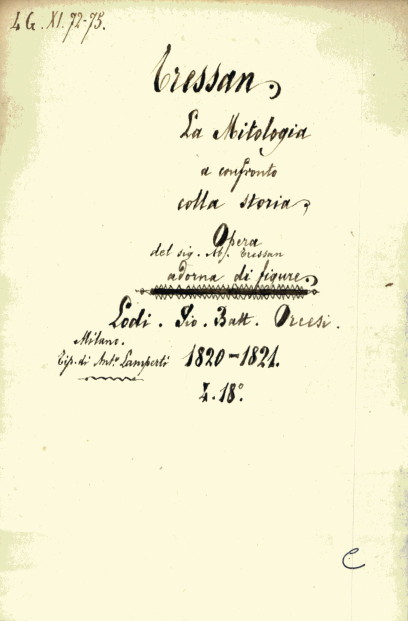 4 G. XI. 72-75.
Tressan
La Mitologia
a confronto
colla storia,
Opera
del sig. Ab. Tressan
adorna di figure,
Lodi. Gio. Batt. Orcesi.
Milano.
Tip. di Ant.o Lamperti
1820-1821.
4. 18°.
C